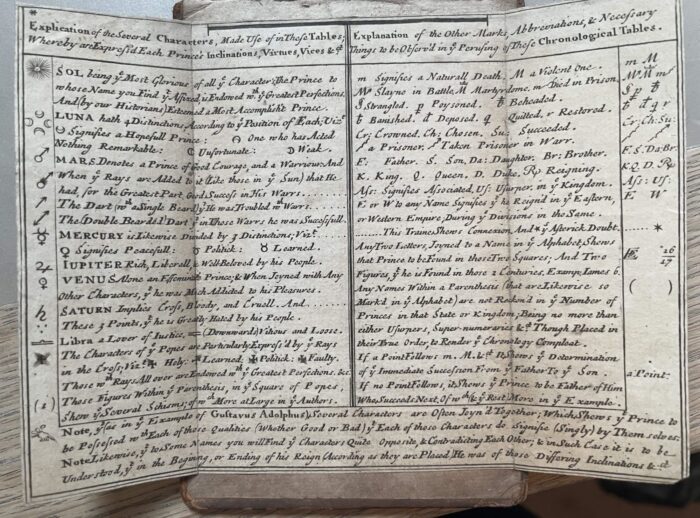 * Explication of the Several Characters, Made Use of in These Tables;
Whereby are Express'd Each Prince's Inclinations, Virtues, Vices & ct
SOL being ye Most Glorious of all ye Character; The Prince to
whose Name you Find ye Affixed is Endowed wth ye Greatest Perfections,
And (by our Historians) Esteemed a Most Accomplisht Prince.
LUNA hath 4 Distinctions According to ye Position of Each; Vizt
Signifies a Hopefull Prince: One who has Acted
Nothing Remarkable: Unfortunate: Weak.
MARS Denotes a Prince of Good Courage, and a Warriour: And
When ye Rays are Added to it (Like those in ye Sun) that He
had, for the Greatest Part, Good Success in His Warrs....
The Dart (wth a Single Beard) ye He was Troubled wth Warrs.
The (Double Bearded) Dart in These Warrs he was Successfull.
MERCURY is Likewise Divided by 4 Distinctions; Vizt
☿ Signifies Peacefull: Politick: Learned.
IUPITER Rich, Liberall, & Well-Beloved by his People.
VENUS Alone an Effeminate Prince; & When Joyned with Any
Other Characters, ye he was Much Addicted to his Pleasures.
SATURN Implies Cross, Bloody, and Cruell. And.......
These 3 Points, ye he is Greatly Hated by his People.
Libra a Lover of Justice, (Downward) Vitious and Loose.
The Characters of ye Popes are Particularly Express'd by ye Rays
in the Cross; Vizt Holy: Learned: Politick: Faulty.
Those wth Rays All over are Endowed wth ye Greatest Perfections. &c
Those Figures Within ye Parenthesis, in ye Square of Popes,
Shew ye Several Schisms; of wch More at Large in ye Authors.
♂
♃
♀
♄
(1)
Explanation of the Other Marks, Abbreviations, & Necessary
Things to be Observ'd in ye Perusing of These Chronological Tables.
m Signifies a Naturall Death. M a Violent One.
Slayne in Battle. Martyrdome. Died in Prison.
Strangled. Poysoned. Beheaded.
Banished. Deposed. Quitted, r Restored.
Cr: Crowned. Ch: Chosen. Su: Succeeded.
a Prisoner, Taken Prisoner in Warr.
F: Father. S. Son, Da: Daughter. Br: Brother.
K. King. Q. Queen. D. Duke, Rg Reigning.
Ass: Signifies Associated, Us: Usurper. in ye Kingdom.
E or W to any Name Signifies ye he Reign'd in ye Eastern,
or Western Empire, During ye Divisions in the Same.
.......This Traine Shews Connexion. And * ye Asterick Doubt.
Any Two Letters, Joyned to a Name in ye Alphabet; Shews
that Prince to be Found in those Two Squares; And Two
Figures, ye he is Found in those 2 Centuries. Examp; James 6.
Any Names Within a Parenthesis (that are Likewise so
Mark'd in ye Alphabet) are not Reckn'd in ye Number of
Princes in that State or Kingdom; Being no more than
either Usurpers, Super-numeraries &ct Though Placed in
their True Order, to Render ye Chronology Compleat.
If a Point Follows m. M. &ct It Shews ye Determination
of ye Immediate Succession From ye Father To ye Son.
If no Point Follows, it Shews ye Prince to be Father of Him
Who Succeeds Next. Of wch (& ye Rest) More in ye Example.
m M
Cr: Ch: Su:
F. S. Da: Br:
K. Q. D. Rg
Ass: Us:
E W
*
16
17
( )
a Point.
Note, ye (as in ye Example of Gustavus Adolphus), Several Characters are Often Joyn'd Together; Which Shews ye Prince to
be Possesed wth Each of those Qualities (Whether Good or Bad) ye Each of these Characters do Signifie (Singly) by Them selves:
Note Likewise, ye to Some Names you will Find ye Characters Quite Opposite, & Contradicting Each Other; & in Such Case it is to be
Understood, ye in the Begining, or Ending of his Reign (According as they are Placed) He was of those Differing Inclinations & ct